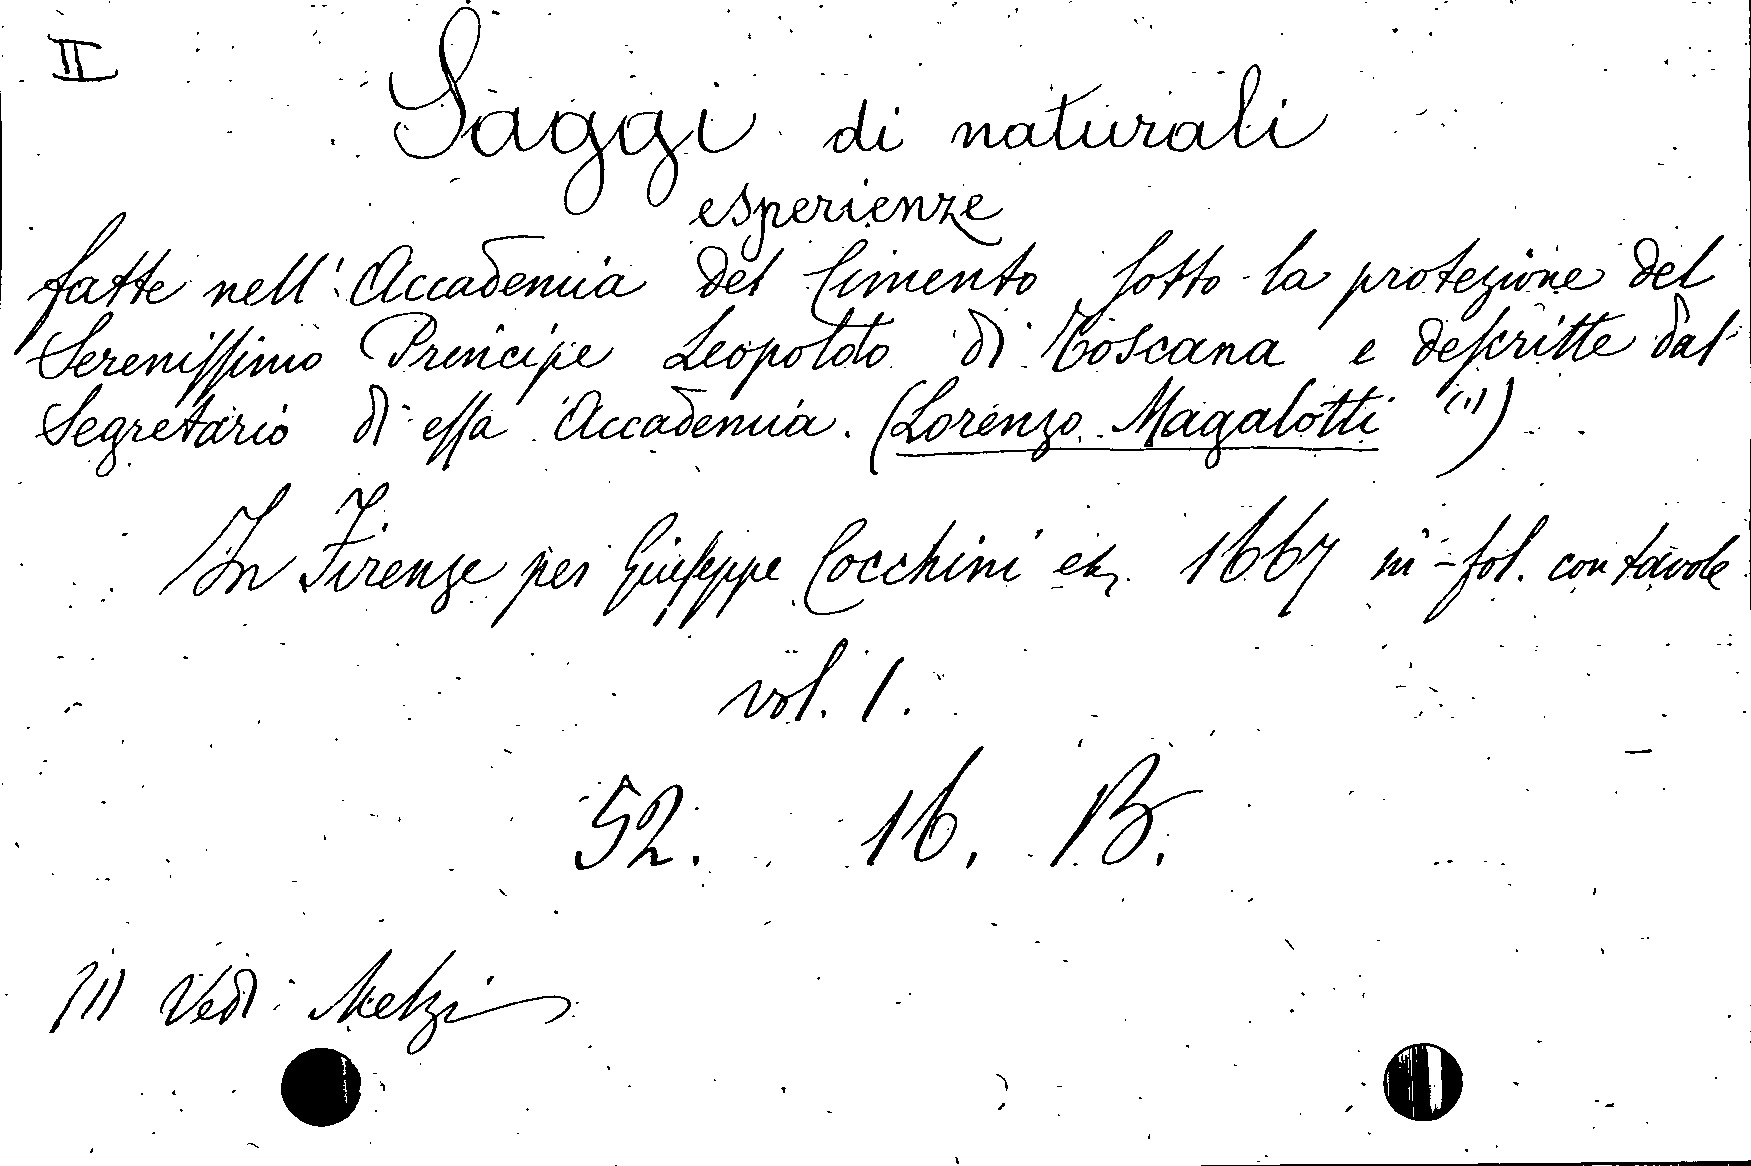 II
Saggi di naturali
esperienze
fatte nell' Accademia del Cimento sotto la protezione del
Sereniſſimo Principe Leopoldo di Toscana e deſcritte dal
Segretario di eſſa Accademia. (Lorenzo Magalotti (1))
In Firenze per Giuſeppe Cocchini etc. 1667 in-fol. con tavole
vol. 1.
52. 16. B.
(1) Vedi Melzi